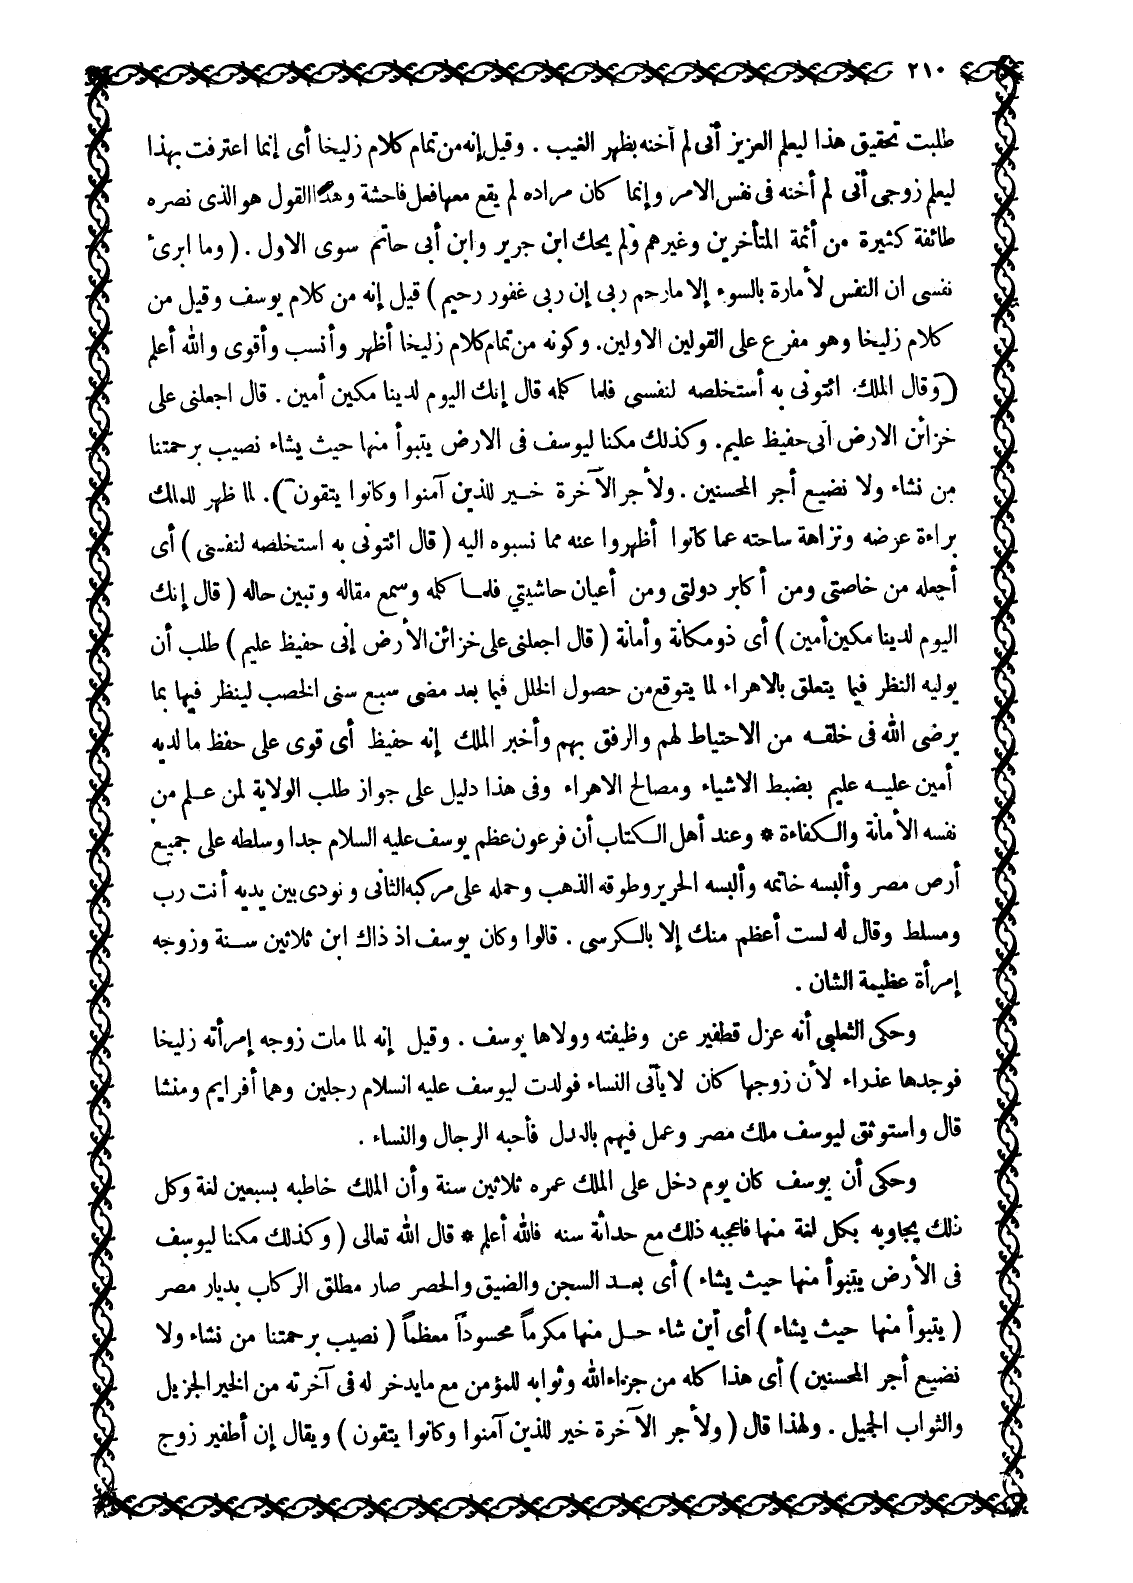 ٢١٠
طلبت تحقيق هذا ليعلم العزيز أنى لم أخنه بظهر الغيب . وقيل إنه من تمام كلام زليخا أى إنما اعترفت بهذا
ليعلم زوجى أنى لم أخنه فى نفس الامر وإنما كان مراده لم يقع معها فعل فاحشة وهذا القول هو الذى نصره
طائفة كثيرة من أئمة المتأخرين وغيرهم ولم يحك ابن جرير وابن أبى حاتم سوى الاول . ( وما ابرىء
نفسى ان النفس لأمارة بالسوء إلا مارحم ربى إن ربى غفور رحيم ) قيل إنه من كلام يوسف وقيل من
كلام زليخا وهو مفرع على القولين الاولين. وكونه من تمام كلام زليخا أظهر وأنسب وأقوى والله أعلم
( وقال الملك ائتونى به أستخلصه لنفسى فلما كلمه قال إنك اليوم لدينا مكين أمين . قال اجعلنى على
خزائن الارض انى حفيظ عليم. وكذلك مكنا ليوسف فى الارض يتبوأ منها حيث يشاء نصيب برحمتنا
من نشاء ولا نضيع أجر المحسنين . ولأجر الآخرة خير للذين آمنوا وكانوا يتقون ). لما ظهر للملك
براءة عرضه ونزاهة ساحته عما كانوا أظهروا عنه مما نسبوه اليه ( قال ائتونى به استخلصه لنفسى ) أى
أجعله من خاصتى ومن أكابر دولتى ومن أعيان حاشيتي فلما كلمه وسمع مقاله وتبين حاله ( قال إنك
اليوم لدينا مكين أمين ) أى ذو مكانة وأمانة ( قال اجعلنى على خزائن الأرض إنى حفيظ عليم ) طلب أن
يوليه النظر فيما يتعلق بالاهراء لما يتوقع من حصول الخلل فيما بعد مضى سبع سنى الخصب لينظر فيها بما
يرضى الله فى خلقه من الاحتياط لهم والرفق بهم وأخبر الملك إنه حفيظ أى قوى على حفظ ما لديه
أمين عليه عليم بضبط الاشياء ومصالح الاهراء وفى هذا دليل على جواز طلب الولاية لمن علم من
نفسه الأمانة والكفاءة * وعند أهل الكتاب أن فرعون عظم يوسف عليه السلام جدا وسلطه على جميع
أرض مصر وألبسه خاتمه وألبسه الحرير وطوقه الذهب وحمله على مركبه الثانى ونودى بين يديه أنت رب
ومسلط وقال له لست أعظم منك إلا بالكرسى . قالوا وكان يوسف اذ ذاك ابن ثلاثين سنة وزوجه
إمرأة عظيمة الشان .
وحكى الثعلبى أنه عزل قطفير عن وظيفته وولاها يوسف . وقيل إنه لما مات زوجه إمرأته زليخا
فوجدها عذراء لأن زوجها كان لا يأتى النساء فولدت ليوسف عليه السلام رجلين وهما أفرايم ومنشا
قال واستوثق ليوسف ملك مصر وعمل فيهم بالعدل فأحبه الرجال والنساء .
وحكى أن يوسف كان يوم دخل على الملك عمره ثلاثين سنة وأن الملك خاطبه بسبعين لغة وكل
ذلك يجاوبه بكل لغة منها فاعجبه ذلك مع حداثة سنه فالله أعلم * قال الله تعالى ( وكذلك مكنا ليوسف
فى الأرض يتبوأ منها حيث يشاء ) أى بعد السجن والضيق والحصر صار مطلق الركاب بديار مصر
( يتبوأ منها حيث يشاء ) أى أين شاء حل منها مكرماً محسوداً معظماً ( نصيب برحمتنا من نشاء ولا
نضيع أجر المحسنين ) أى هذا كله من جزاء الله وثوابه للمؤمن مع ما يدخر له فى آخرته من الخير الجزيل
والثواب الجميل . ولهذا قال ( ولأجر الآخرة خير للذين آمنوا وكانوا يتقون ) ويقال إن أطفير زوج